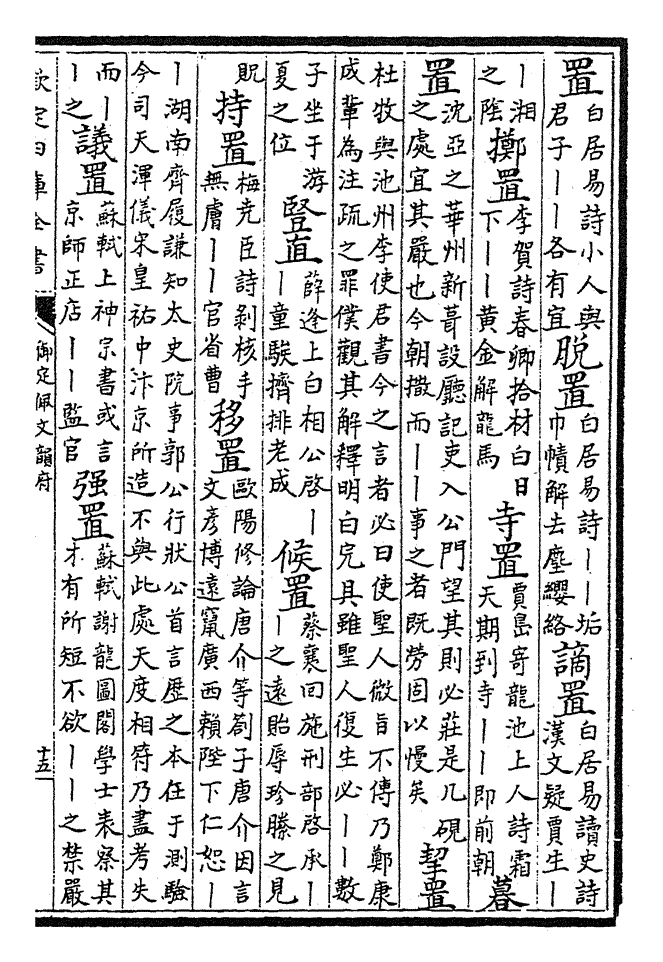 置 白居易詩小人與君子丨丨各有宜 脫置 白居易詩丨丨垢巾幘解去塵纓絡 謫置 白居易讀史詩漢文疑賈生丨
丨湘之陰 擲置 李賀詩春卿拾材白日下丨丨黃金解龍馬 寺置 賈島寄龍池上人詩霜天期到寺丨丨即前朝 暮
置 沈亞之華州新葺設廳記吏入公門望其則必莊是几硯之處宜其嚴也今朝撤而丨丨事之者既勞固以慢矣 挈置
杜牧與池州李使君書今之言者必曰使聖人微旨不傳乃鄭康成輩為注疏之罪僕觀其解釋明白完具雖聖人復生必丨丨數
子坐于游夏之位 豎直 薛逢上白相公啓丨丨童騃擠排老成 候置 蔡襄回施刑部啓承丨丨之遠貽辱珍縢之見
貺 持置 梅堯臣詩剝核手無膚丨丨官省曹 移置 歐陽修論唐介等劄子唐介因言文彥博遠竄廣西賴陛下仁恕丨
丨湖南齊履謙知太史院事郭公行狀公首言歷之本在于測驗今司天渾儀宋皇祐中汴京所造不與此處天度相符乃盡考失
而丨丨之 議置 蘇軾上神宗書或言京師正店丨丨監官 强置 蘇軾謝龍圖閣學士表察其才有所短不欲丨丨之禁嚴
欽定四庫全書
御定佩文韻府
十五